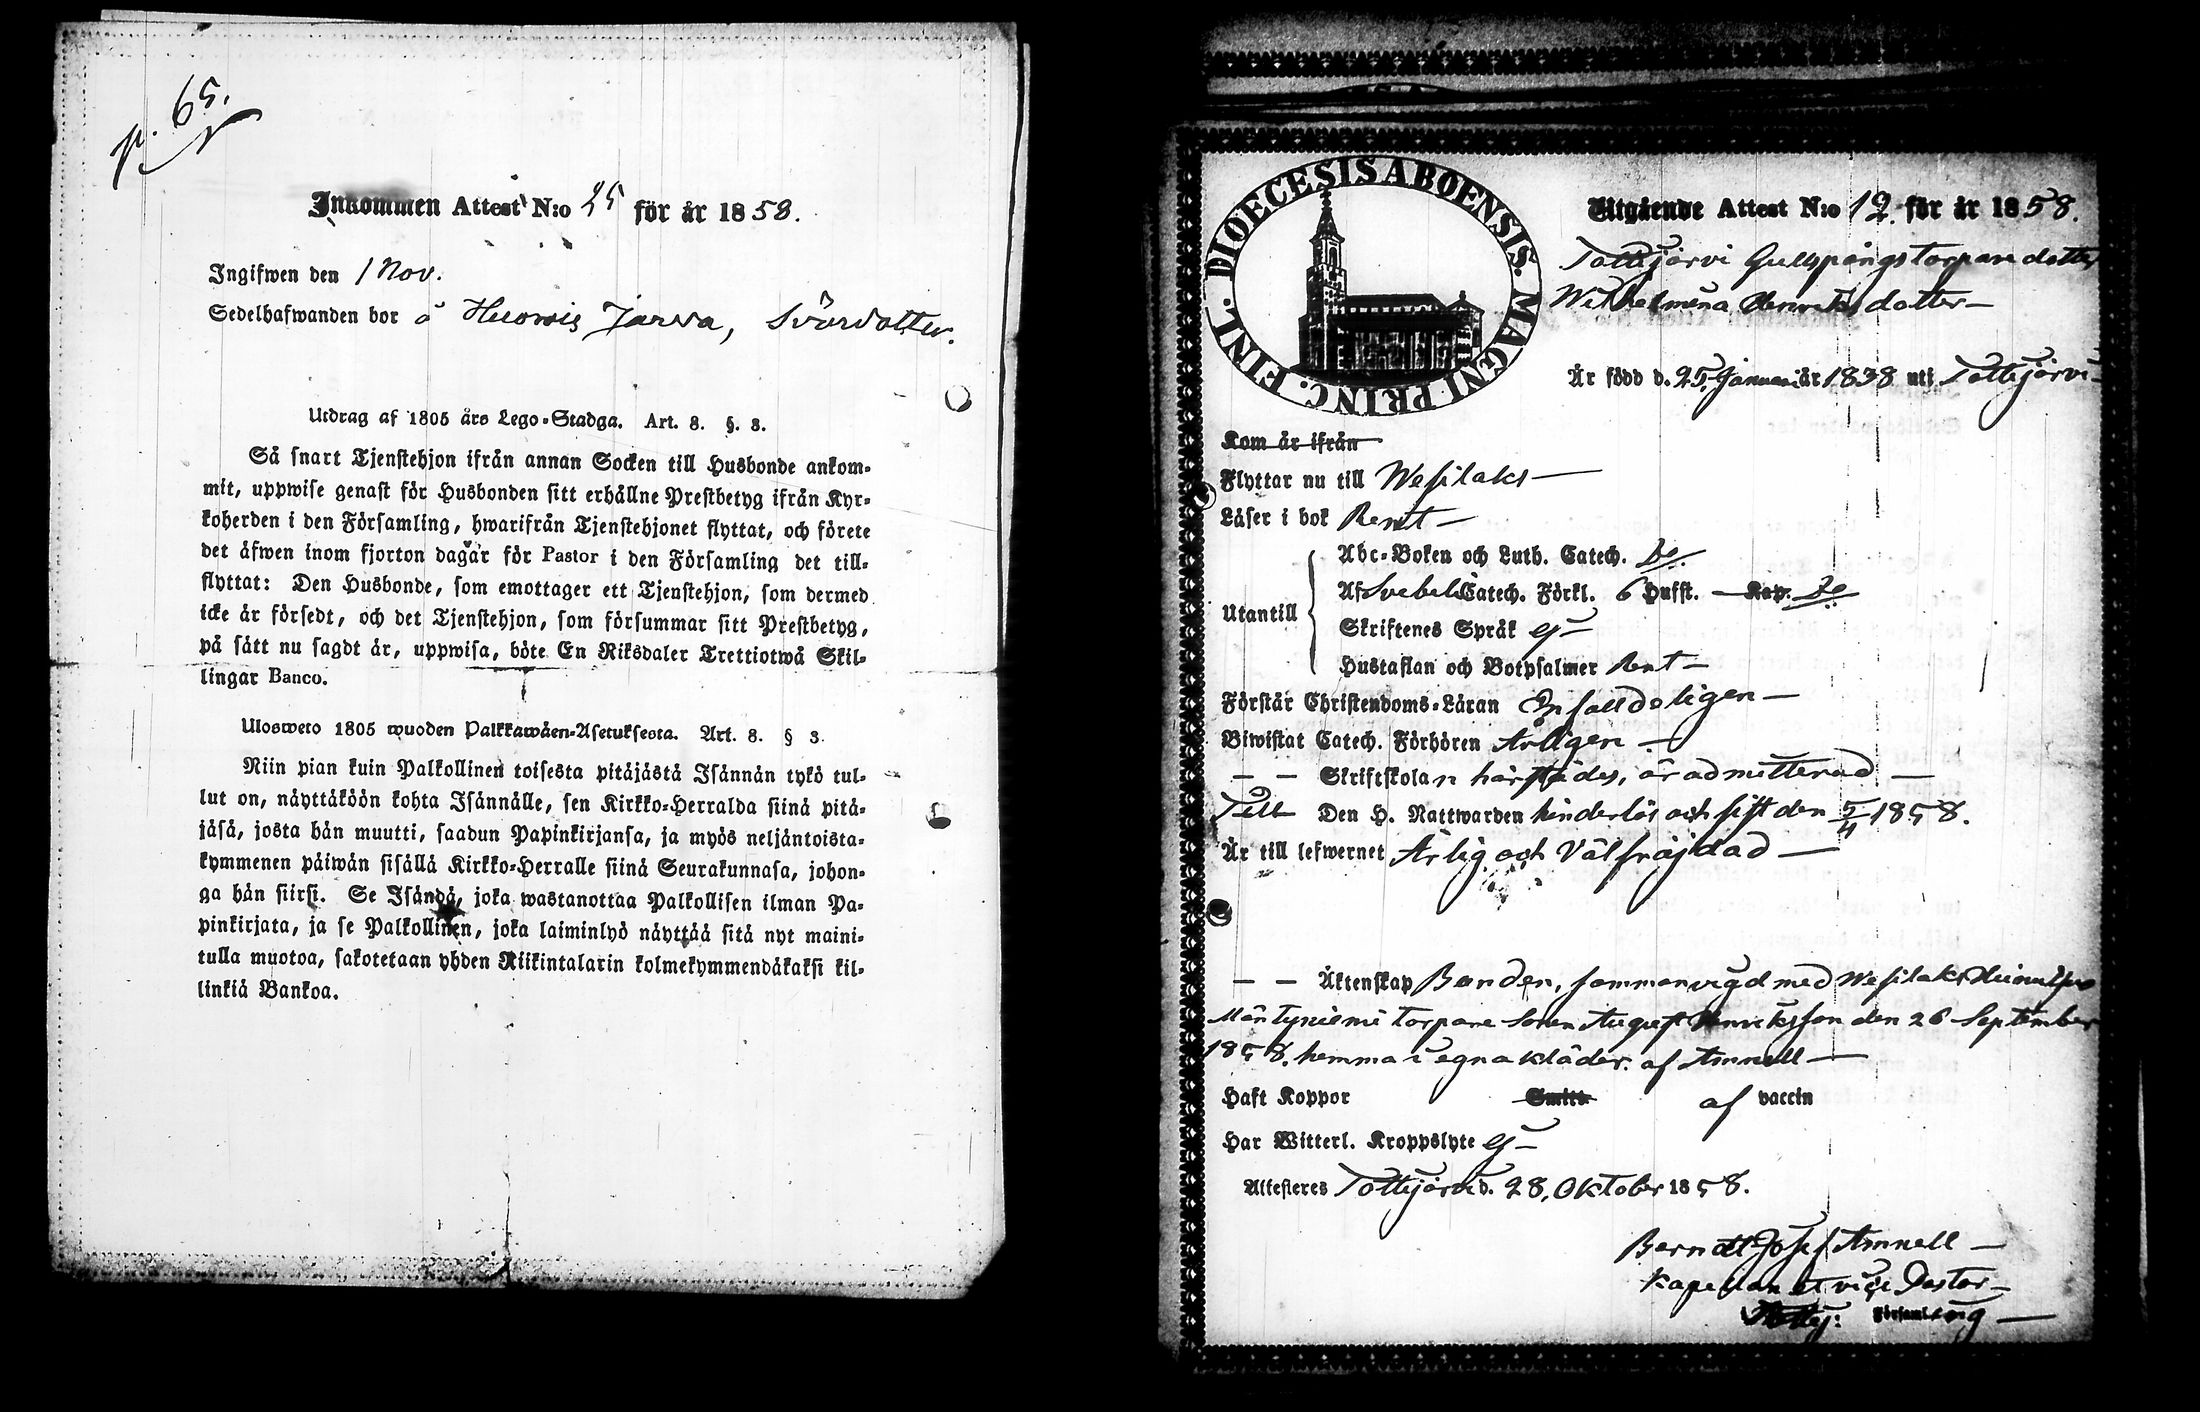 p. 65.
Inkommen Attest N:o 25 för år 1858.
Ingifwen den 1 Nov.
Sedelhafwanden bor å Jarva,
Utdrag af 1805 års Lego-Stadga. Art. 8. §. 3.
Så snart Tjenstehjon ifrån annan Socken till Husbonde ankom-
mit, uppwise genast för Husbonden sitt erhållne Prestbetyg ifrån Kyr-
koherden i den Församling, hwarifrån Tjenstehjonet flyttat, och förete
det äfwen inom fjorton dagar för Pastor i den Församling det till-
flyttat: Den Husbonde, som emottager ett Tjenstehjon, som dermed
icke är försedt, och det Tjenstehjon, som försummar sitt Prestbetyg,
på sätt nu sagdt är, uppwisa, böte En Riksdaler Trettiotwå Skil-
lingar Banco.
Ulosweto 1805 wuoden Palkkawäen-Asetuksesta. Art. 8. § 3.
Niin pian kuin Palkollinen toisesta pitäjästä Isännän tykö tul-
lut on, näyttäköön kohta Isännälle, sen Kirkko-Herralda siinä pitä-
jäsä, josta hän muutti, saadun Papinkirjansa, ja myös neljäntoista-
kymmenen päiwän sisällä Kirkko-Herralle siinä Seurakunnasa, johon-
ga hän siirsi. Se Isändä, joka wastanottaa Palkollisen ilman Pa-
pinkirjata, ja se Palkollinen, joka laiminlyö näyttää sitä nyt maini-
tulla muotoa, sakotetaan yhden Riikintalarin kolmekymmendäkaksi kil-
linkiä Bankoa.
DIOECESIS ABOENSIS. MAGNI PRINC. FINL.
Utgående Attest N:o 12. för år 1858.
Tottijärvi Gullspångs torpare dotter
Wilhelmina Henriksdotter
Är född d. 25 Januari år 1838 uti Tottijärvi
Kom år ifrån
Flyttar nu till Wesilaks
Läser i bok Rent
Utantill
Abc-Boken och Luth. Catech. Do
Af Svebel. Catech. Förkl. 6 Hufst. Kap. Do
Skriftenes Språk ej
Hustaflan och Botpsalmer Rent
Förstår Christendoms-Läran Enfalldeligen
Biwistat Catech. Förhören Årligen
Skriftskolan härstädes, är admitterad
Till Den H. Nattwarden hinderlös och sist den 5/4 1858.
Är till lefwernet Ärlig och Välfräjdad
Äktenskap Bunden, sammanvigd med Wesilaks
Mäntyniemi torpare Sonen August Henriksson den 26 September
1858. hemma i egna kläder. af Amnell
Haft Koppor Smitt af vaccin
Har Witterl. Kroppslyte ej
Attesteres Tottijärvi d. 28. Oktober 1858.
Berndt Josef Amnell
Kapellan et vice Pastor
Tottij: Församling